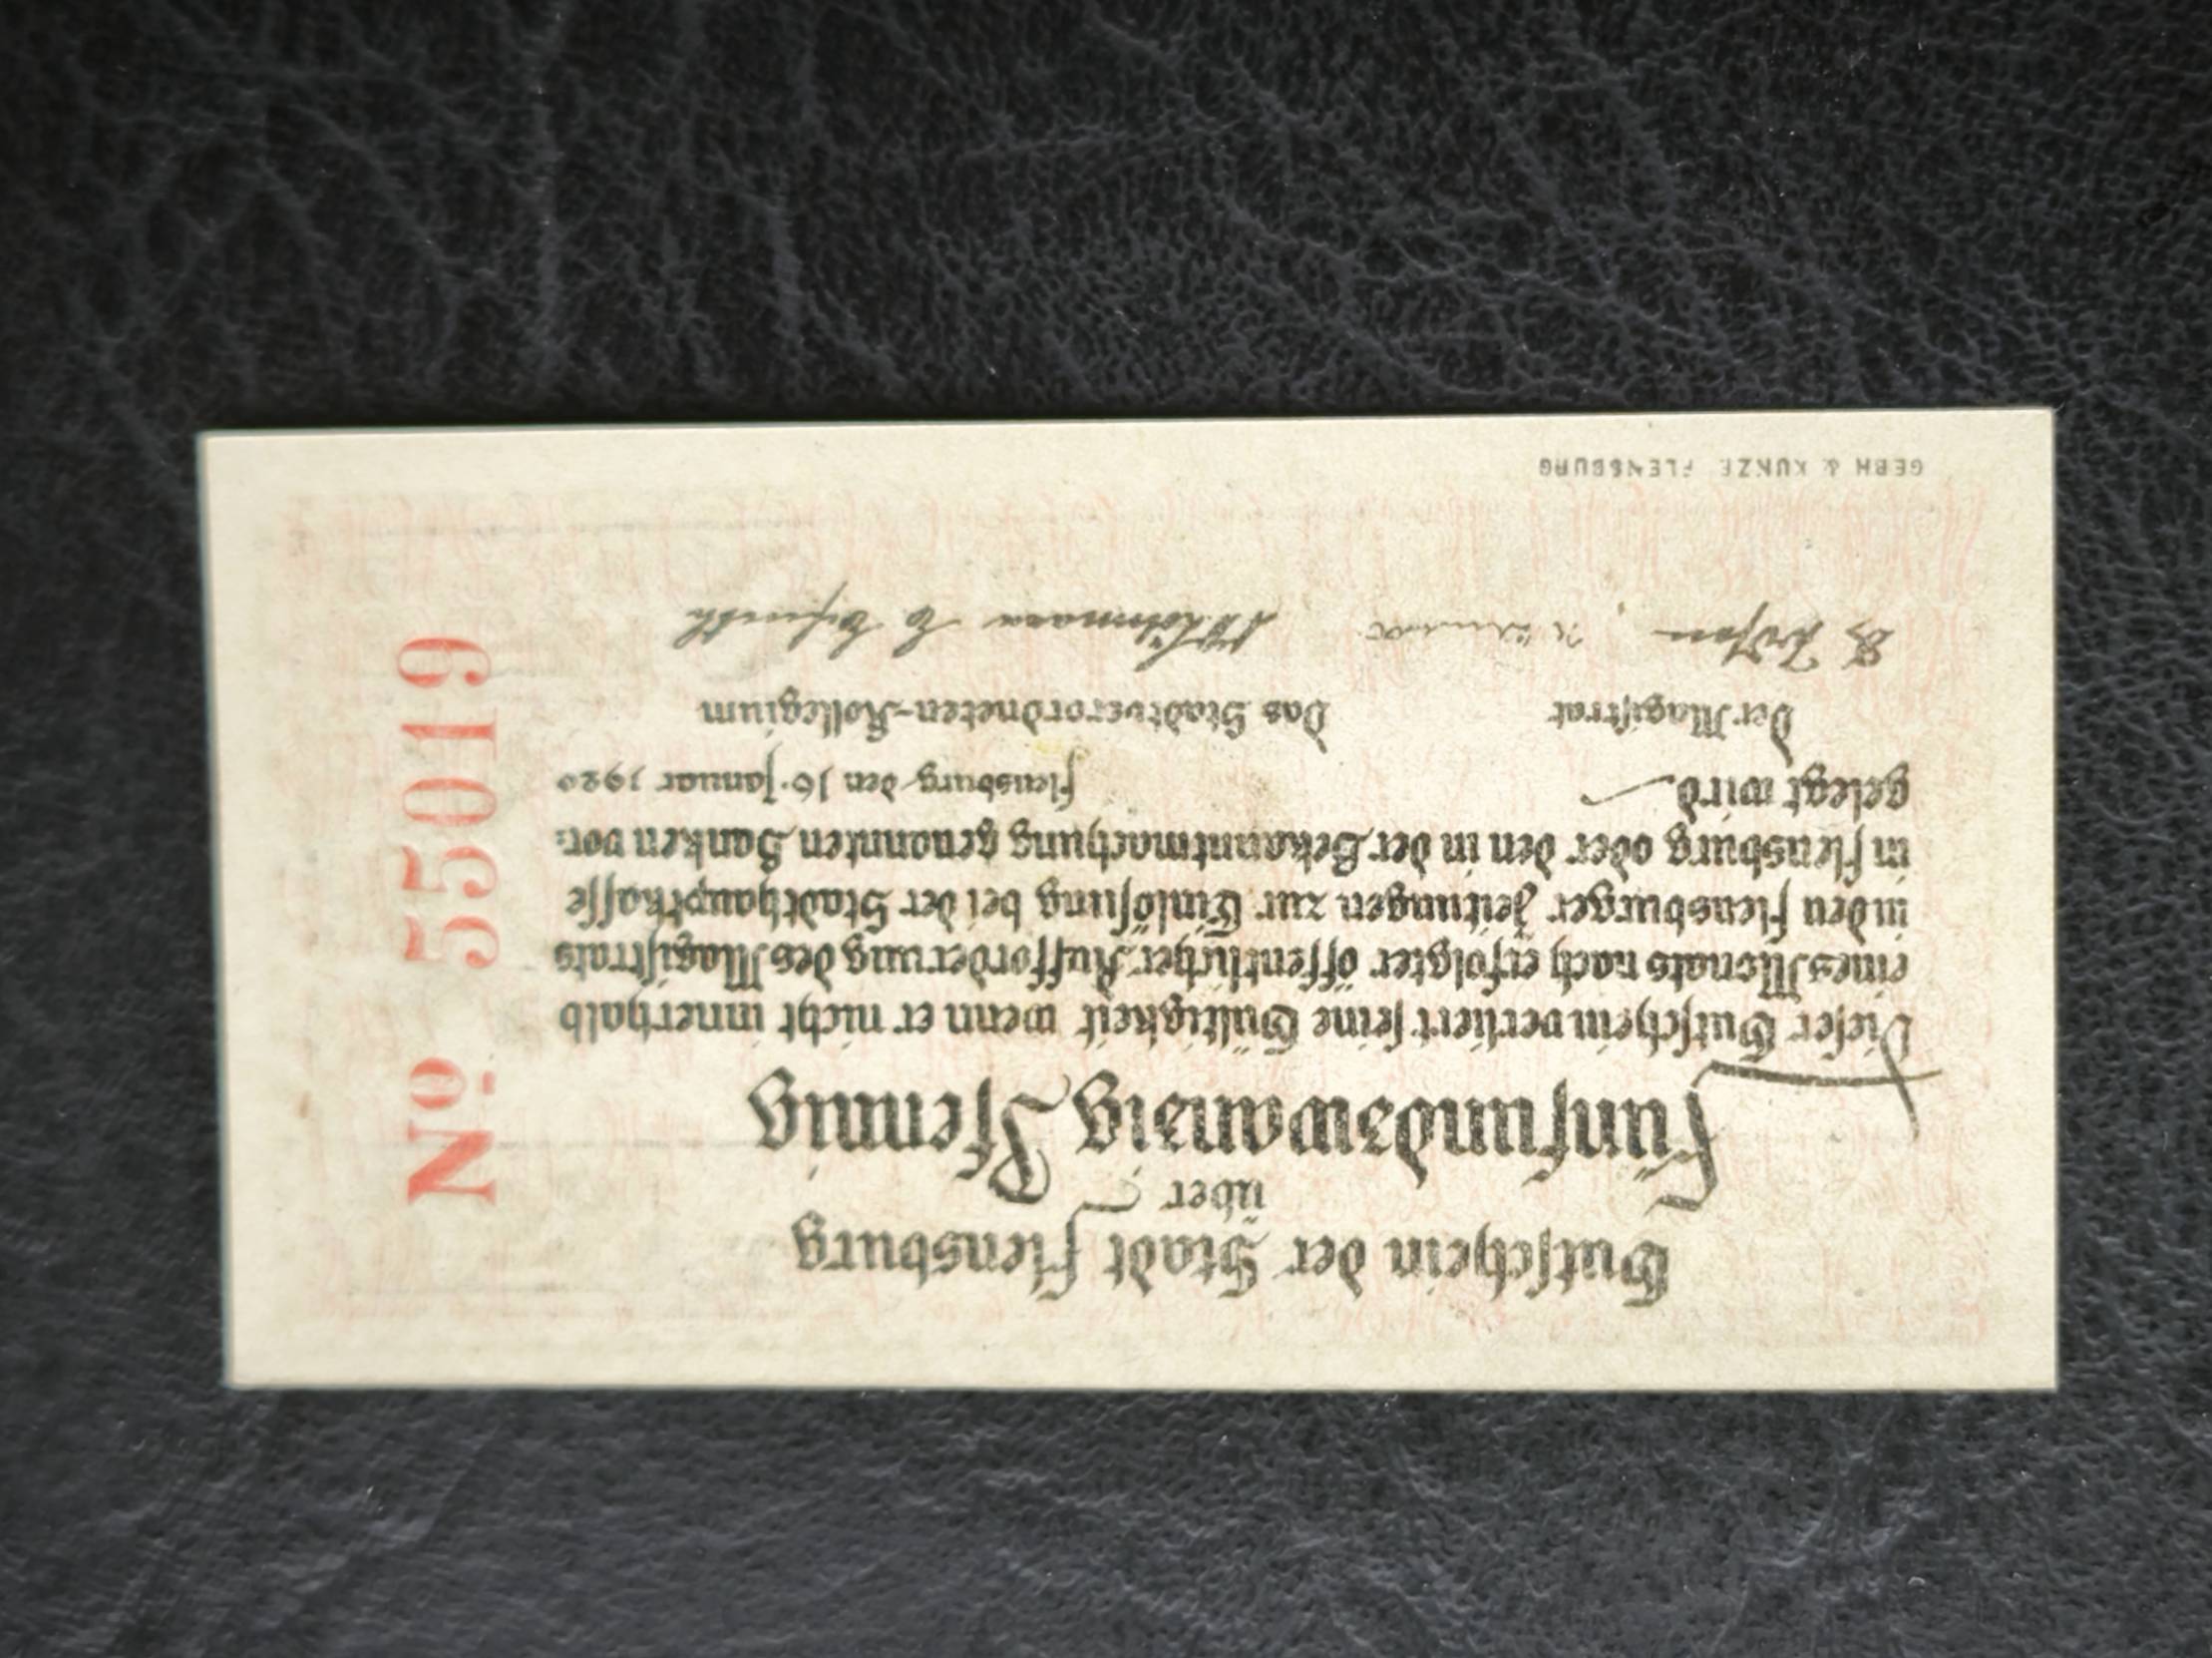 Gutschein der Stadt Flensburg
über
Fünfundzwanzig Pfennig
Dieser Gutschein verliert seine Gültigkeit, wenn er nicht innerhalb
eines Monats nach erfolgter öffentlicher Aufforderung des Magistrats
in den Flensburger Zeitungen zur Einlösung bei der Stadthauptkasse
in Flensburg oder den in der Bekanntmachung genannten Banken vor-
gelegt wird.
Flensburg, den 16. Januar 1920
Der Magistrat
Das Stadtverordneten-Kollegium
GEBH & KUNZE FLENSBURG
No 55019